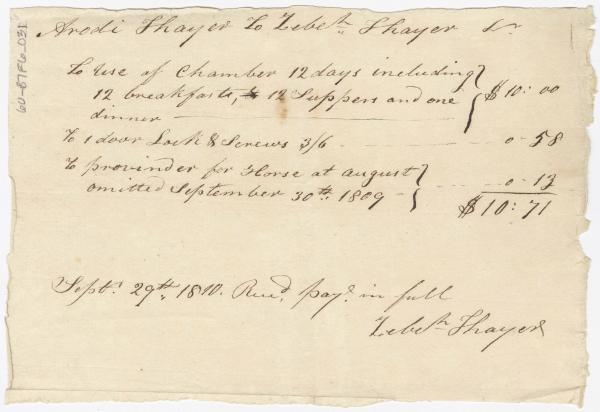 Arodi Thayer To Zebeth Thayer Dr
To Use of Chamber 12 days including
12 breakfasts, & 12 Suppers and one
dinner $10:00
To 1 door Lock & Screws 3/6 0-58
To provinder for Horse at august
omitted September 30th 1809 0-13
$10:71
Septr 29th 1810. Recd pay in full
Zebeth Thayer
60-87F6-031